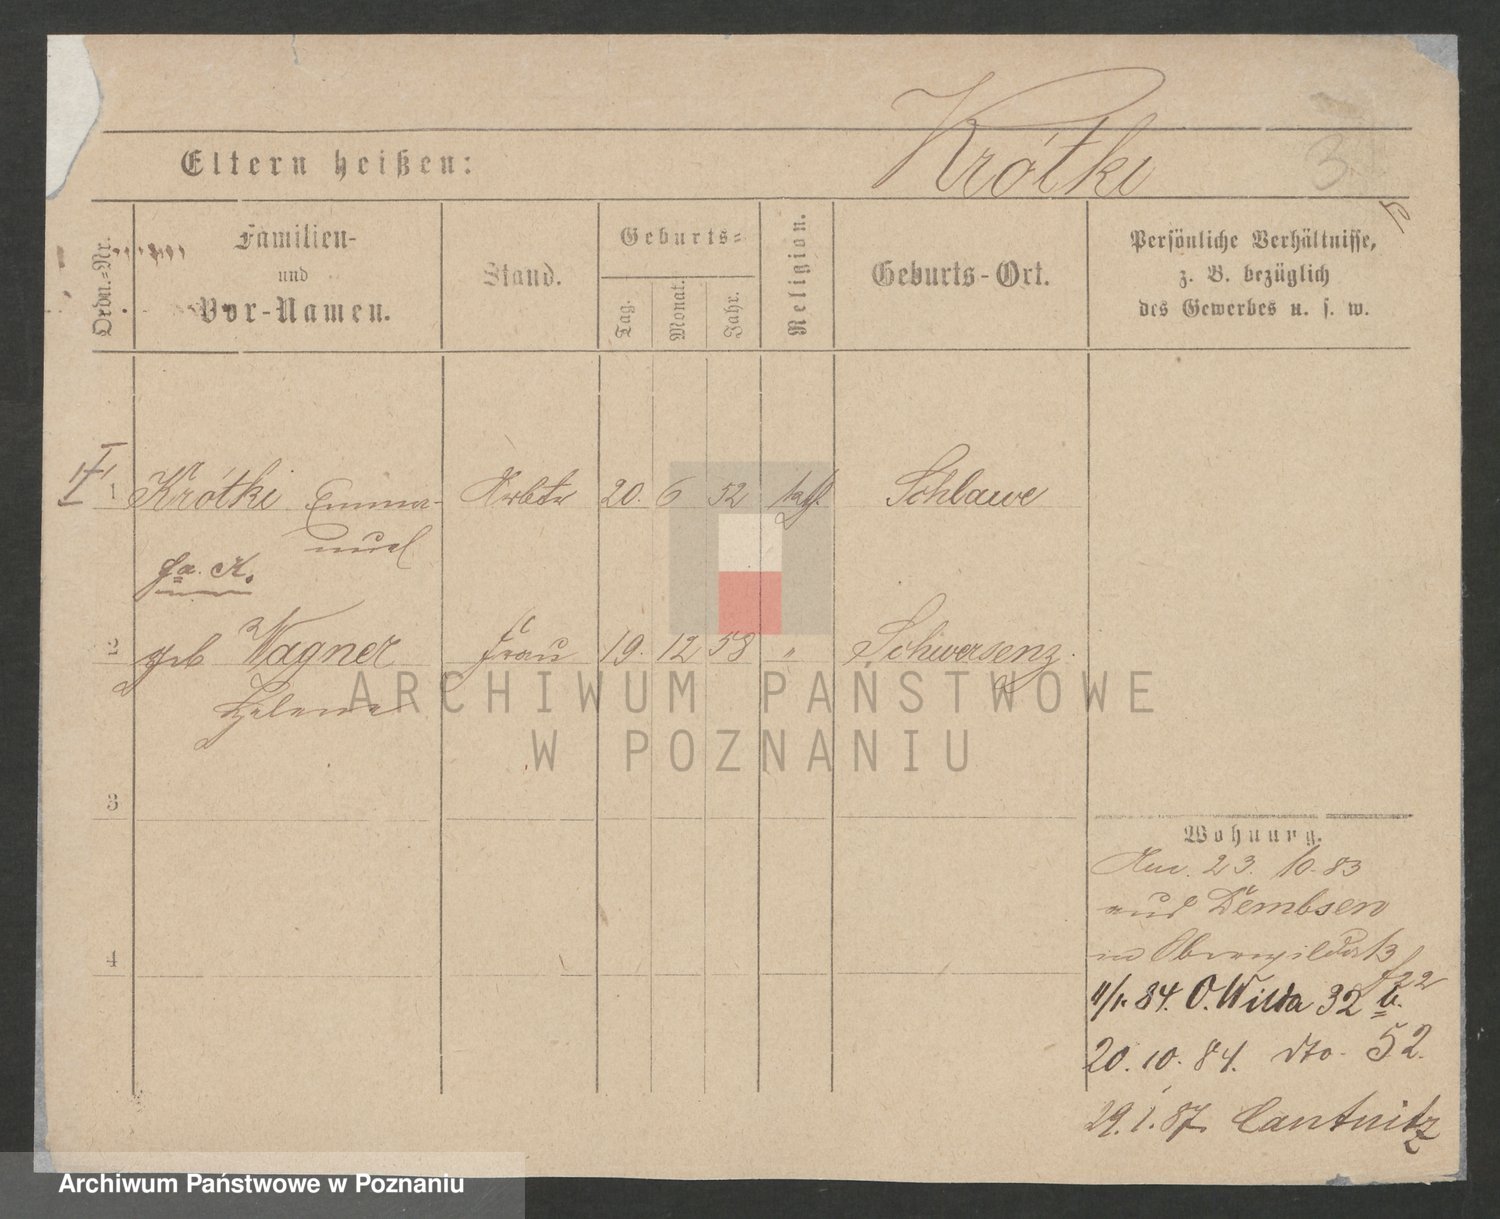 Krótki
3
Eltern heißen:
Ordn.-Nr.
Familien-
und
Vor-Namen.
Stand.
Geburts-
Tag.
Monat.
Jahr.
Religion.
Geburts-Ort.
Persönliche Verhältnisse,
z. B. bezüglich
des Gewerbes u. s. w.
1 Krótki Emma- Arbtr 20. 6 52 kath. Schlawe
nuel
2 geb Wagner Frau 19. 12 58 " Schwersenz
Helene
3
4
Wohnung.
23. 10. 83
aus Dembsen
11/1. 84. O. Wilda 32 b.
20. 10. 84. dto. 52.
29. 1. 87.
ARCHIWUM PAŃSTWOWE
W POZNANIU
Archiwum Państwowe w Poznaniu